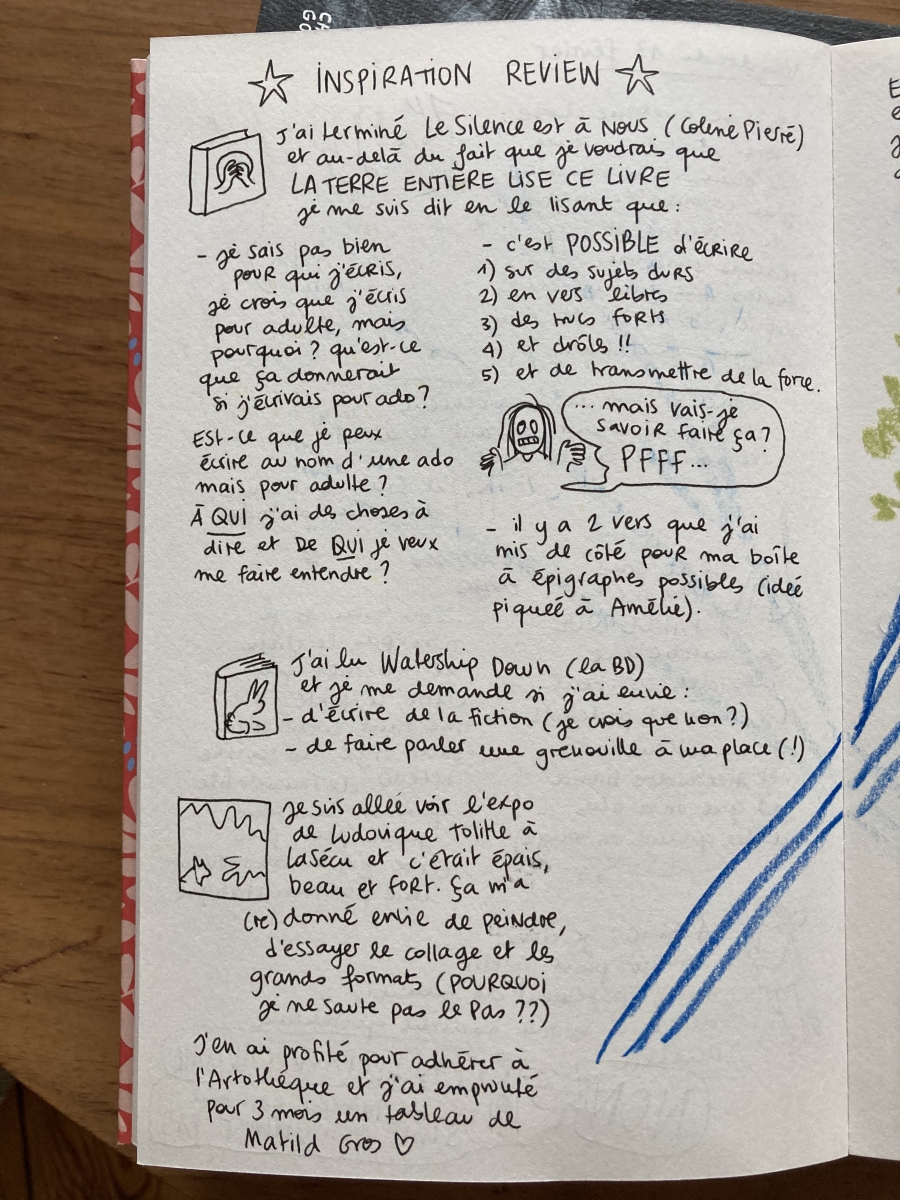 INSPIRATION REVIEW
J'ai terminé Le Silence est à Nous (Coline Pierré)
et au-delà du fait que je voudrais que
LA TERRE ENTIÈRE LISE CE LIVRE
je me suis dit en le lisant que :
- je sais pas bien
pour qui j'écris,
je crois que j'écris
pour adulte, mais
pourquoi ? qu'est-ce
que ça donnerait
si j'écrivais pour ado ?
Est-ce que je peux
écrire au nom d'une ado
mais pour adulte ?
À QUI j'ai des choses à
dire et de QUI je veux
me faire entendre ?
- c'est POSSIBLE d'écrire
1) sur des sujets durs
2) en vers libres
3) des trucs forts
4) et drôles !!
5) et de transmettre de la force.
... mais vais-je
savoir faire ça ?
PFFF ...
- il y a 2 vers que j'ai
mis de côté pour ma boîte
à épigraphes possibles (idée
piquée à Amélie).
J'ai lu Watership Down (la BD)
et je me demande si j'ai envie :
- d'écrire de la fiction (je crois que non ?)
- de faire parler une grenouille à ma place (!)
Je suis allée voir l'expo
de Ludovique Tollitte à
Lasécu et c'était épais,
beau et fort. Ça m'a
(re) donné envie de peindre,
d'essayer le collage et les
grands formats (POURQUOI
je ne saute pas le pas ??)
J'en ai profité pour adhérer à
l'Artothèque et j'ai emprunté
pour 3 mois un tableau de
Matild Gros ♡